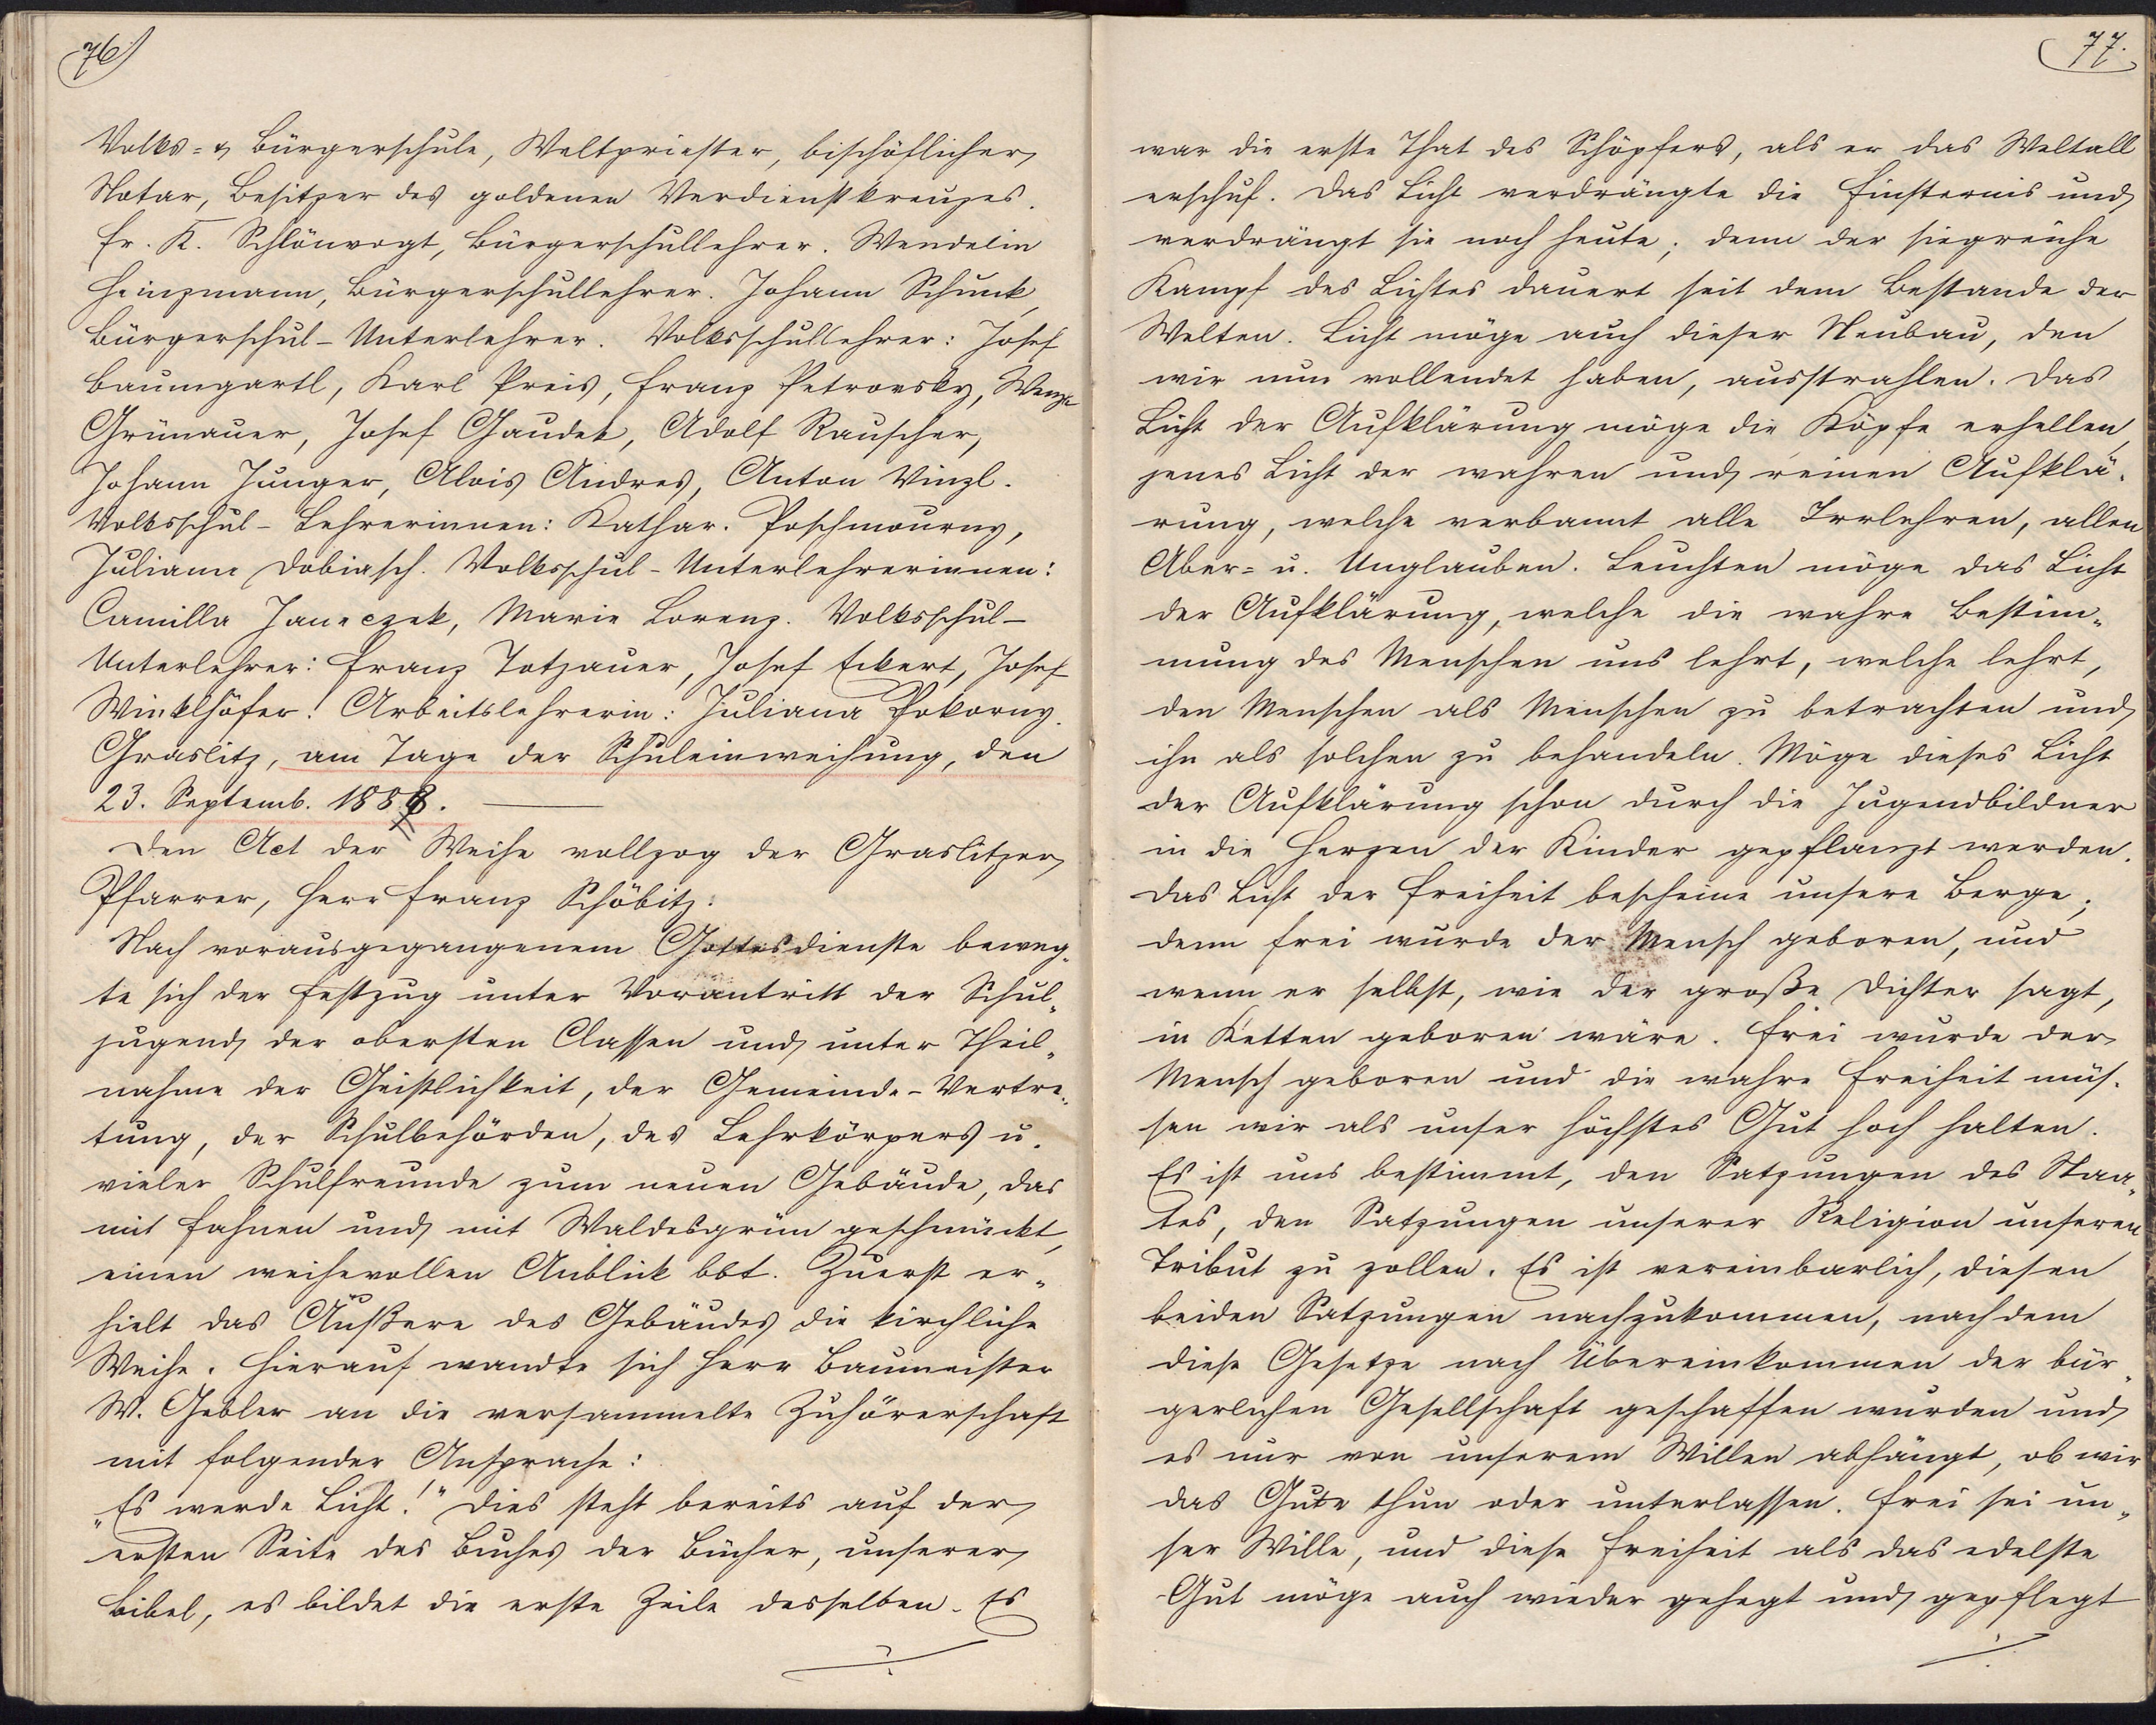 76
Volks- & Bürgerschule, Weltpriester, bischöflicher
Notar, Besitzer des goldenen Verdienstkreuzes.
Fr. K. Schlönvogt, Bürgerschullehrer. Wendelin
Heinzmann, Bürgerschullehrer. Johann Schunk,
Bürgerschul-Unterlehrer. Volksschullehrer: Josef
Baumgartl, Karl Preis, Franz Petrovsky,
Grünauer, Josef Gaudek, Adolf Rauscher,
Johann Junger, Alois Andres, Anton Vinzl.
Volksschul-Lehrerinnen: Kathar. Poschmourny,
Juliane Dobiasch. Volksschul-Unterlehrerinnen:
Camilla Janeczek, Marie Lorenz. Volksschul-
Unterlehrer: Franz Totzauer, Josef Eckert, Josef
Winklhöfer. Arbeitslehrerin: Juliana Pokorny.
Graslitz, am Tage der Schuleinweihung, den
23. Septemb. 1888.
Den Act der Weihe vollzog der Graslitzer
Pfarrer, Herr Franz Schöbitz:
Nach vorausgegangenem Gottesdienste beweg-
te sich der Festzug unter Vorantritt der Schul-
jugend der obersten Classen und unter Theil-
nahme der Geistlichkeit, der Gemeinde-Vertre-
tung, der Schulbehörden, des Lehrkörpers u.
vieler Schulfreunde zum neuen Gebäude, das
mit Fahnen und mit Waldesgrün geschmückt,
einen weihevollen Anblick bot. Zuerst er-
hielt das Äußere des Gebäudes die kirchliche
Weihe. Hierauf wandte sich Herr Baumeister
W. Gebler an die versammelte Zuhörerschaft
mit folgender Ansprache:
„Es werde Licht!" Dies steht bereits auf der
ersten Seite des Buches der Bücher, unserer
Bibel, es bildet die erste Zeile desselben. Es
77.
war die erste That des Schöpfers, als er das Weltall
erschuf. Das Licht verdrängte die Finsternis und
verdrängt sie noch heute; denn der siegreiche
Kampf des Lichtes dauert seit dem Bestande der
Welten. Licht möge auch dieser Neubau, den
wir nun vollendet haben, ausstrahlen. Das
Licht der Aufklärung möge die Köpfe erhellen,
jenes Licht der wahren und reinen Aufklä-
rung, welche verbannt alle Irrlehren, allen
Aber- u. Unglauben. Leuchten möge das Licht
der Aufklärung, welche die wahre Bestim-
mung des Menschen uns lehrt, welche lehrt,
den Menschen als Menschen zu betrachten und
ihn als solchen zu behandeln. Möge dieses Licht
der Aufklärung schon durch die Jugendbildner
in die Herzen der Kinder gepflanzt werden.
Das Licht der Freiheit bescheine unsere Berge;
denn frei wurde der Mensch geboren, und
wenn er selbst, wie der große Dichter sagt,
in Ketten geboren wäre. Frei wurde der
Mensch geboren und die wahre Freiheit müs-
sen wir als unser höchstes Gut hoch halten.
Es ist uns bestimmt, den Satzungen des Staa-
tes, den Satzungen unserer Religion unseren
Tribut zu zollen. Es ist vereinbarlich, diesen
beiden Satzungen nachzukommen, nachdem
diese Gesetze nach Übereinkommen der bür-
gerlichen Gesellschaft geschaffen wurden und
es nur von unserem Willen abhängt, ob wir
das Gute thun oder unterlassen. Frei sei un-
ser Wille, und diese Freiheit als das edelste
Gut möge auch wieder gehegt und gepflegt